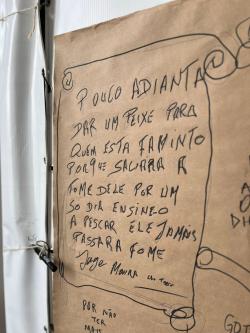 POUCO ADIANTA
DAR UM PEIXE PARA
QUEM ESTA FAMINTO
PORQUE SACIARA A
FOME DELE POR UM
SO DIA ENSINE-O
A PESCAR ELE JAMAIS
PASSARA FOME
Jorge Moura
POR NÃO
TER